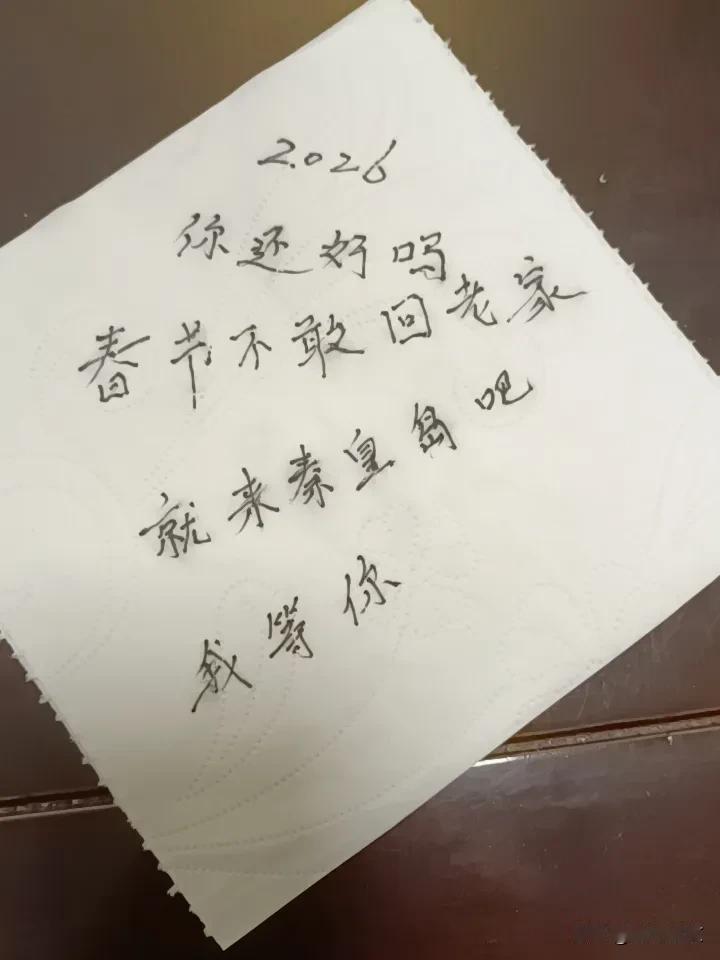 2.026
你还好吗
春节不敢回老家
就来秦皇岛吧
我等你